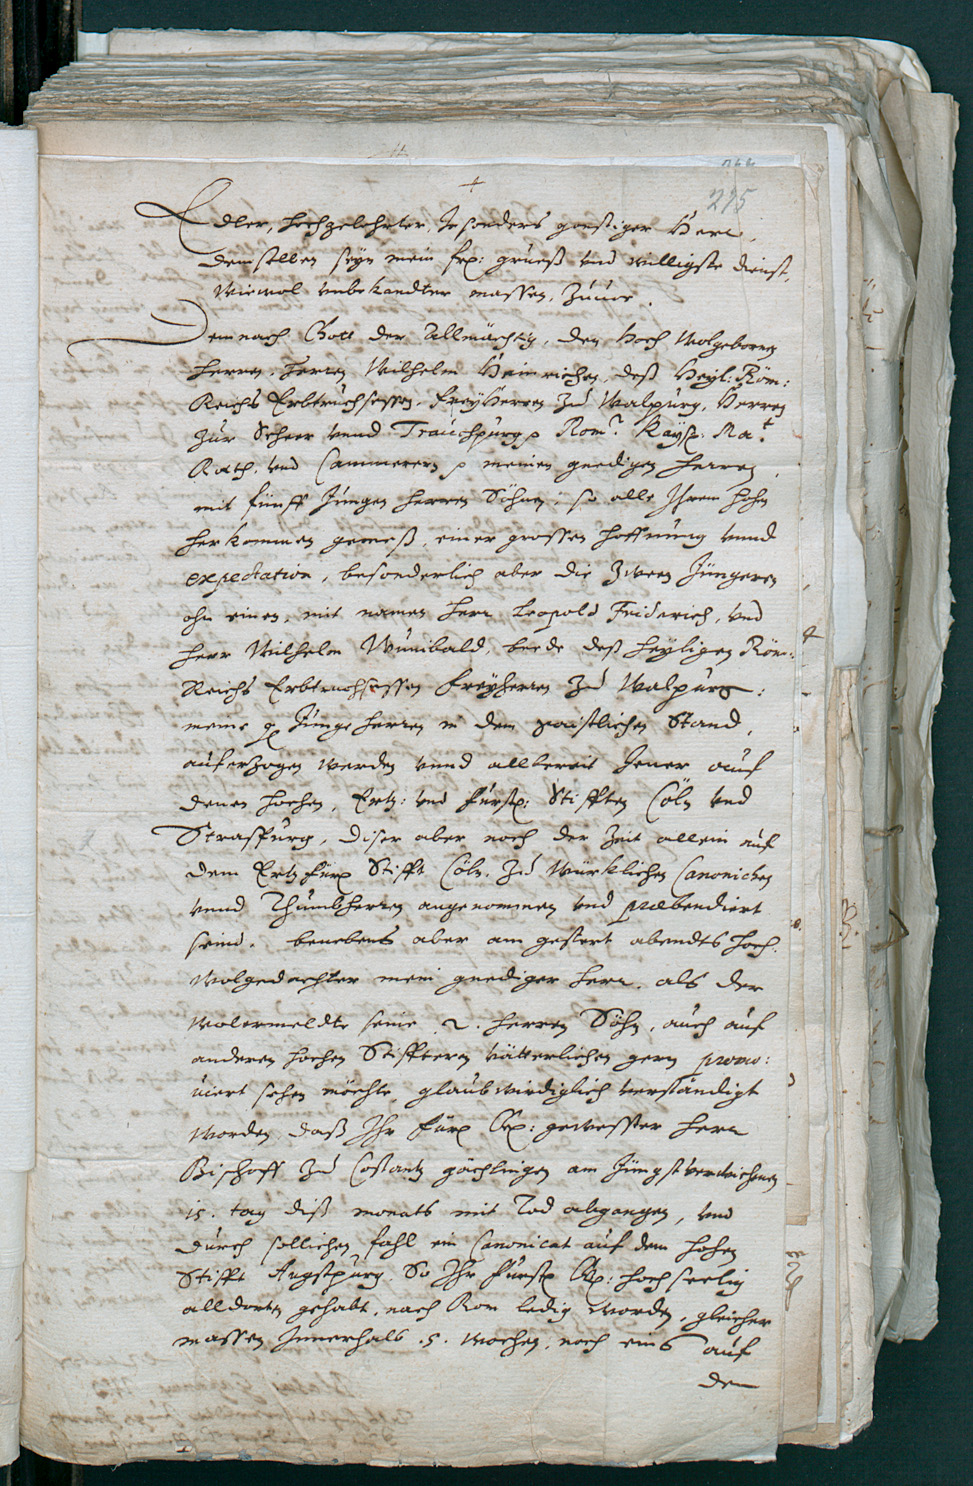 215
Edler, Hochgelehrter, Insonders gonstiger Herr,
demselben seyn mein frx: gruess vnd willigste dienst,
wiewol vnbekandter massen, zuuor.
Demnach Gott der Allmächtig, den Hoch Wolgebornen
Herren, Herren Wilhelm Heinrichen, dess Heyl: Röm:
Reichs Erbtruchsessen, FreyHerren zu Walpurg, Herren
zur Scheer vnnd Trauchpurg p Rom.r Kayſ: Ma.t
Rath, vnd Cammerern p meinen gnedigen Herren
mit fünff Jungen Herren Söhnen, so alle Ihrem hohen
herkommen gemess, einer grossen hoffnung vnnd
expectation, besonderlich aber die zween Jüngeren
ohn einen, mit namen Herr Leopold Friderich, vnd
Herr Wilhelm Wunibald, beede dess Heyligen Röm:
Reichs Erbtruchsessen Freyherren zu Walpurg:
meine g Junge Herren in dem gaistlichen Stand,
auferzogen werden vnnd allbereit Jener auf
denen hochen, Ertz: vnd Fürstx: Stifften Cöln vnd
Strassburg, diser aber noch der zeit allein auf
dem Ertz Fürx Stifft Cöln, zu würklichen Canonichen
vnnd Thumbherren angenommen vnd præbendiert
seind. benebens aber am gestert abendts Hoch:
wolgedachter mein gnediger Herr, als der
wolermeldte seine 2. Herren Söhn, auch auf
anderen hochen Stifftern vätterlichen gern promo:
uiert sehen möchte, glaubwirdiglich verständigt
worden, dass Ihr Fürx Gx: gewesster Herr
Bischoff zu Costantz gächlingen am Jüngstverwichenen
15. tag diss monats mit Tod abgangen, vnd
durch sollichen fahl ein Canonicat auf dem hohen
Stifft Augspurg, So Ihr Fürstx Gx: hochseelig
alldorten gehabt, nach Rom ledig worden, gleicher
massen Innerhalb .5. wochen, noch eins auf
dem